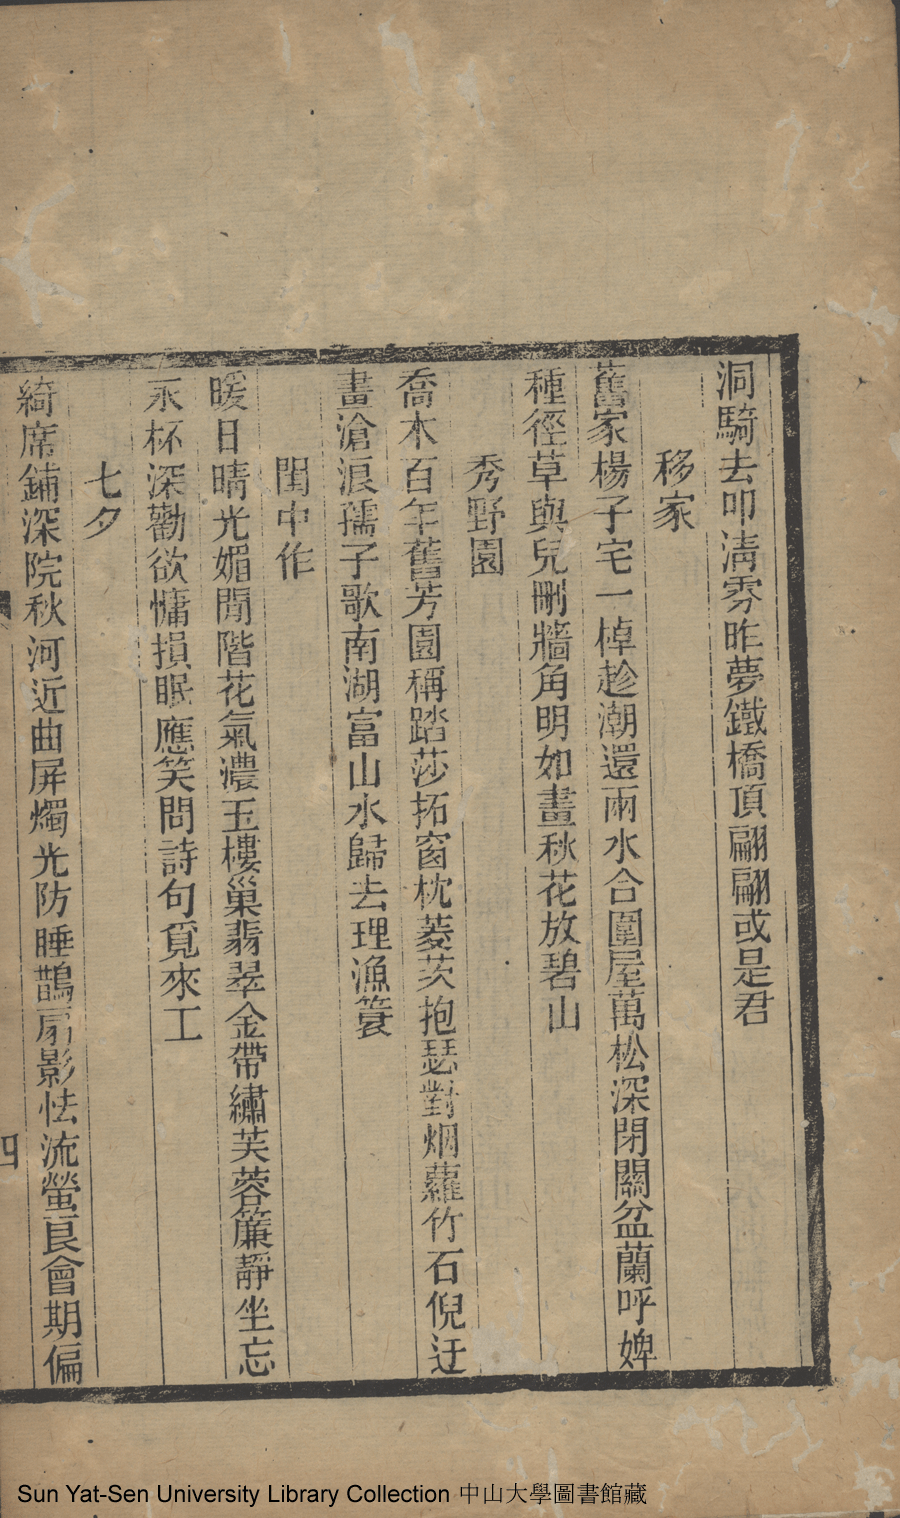 洞騎去叩清雰昨夢鐵橋頂翩翩或是君
移家
舊家楊子宅一棹趁潮還兩水合圍屋萬松深閉關盆蘭呼婢
種徑草與兒刪牆角明如畫秋花放碧山
秀野園
喬木百年舊芳園稱踏莎拓窗枕菱茨抱瑟對烟蘿竹石倪迂
畫滄浪孺子歌南湖富山水歸去理漁簑
閨中作
暖日晴光媚閒階花氣濃玉樓巢翡翠金帶繡芙蓉簾靜坐忘
永杯深勸欲慵損眠應笑問詩句覓來工
七夕
綺席鋪深院秋河近曲屏燭光防睡鵲扇影怯流螢良會期偏
四
Sun Yat-Sen University Library Collection 中山大學圖書館藏